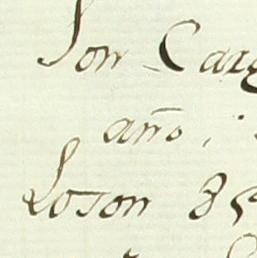 Son Carg
año
Loson 85